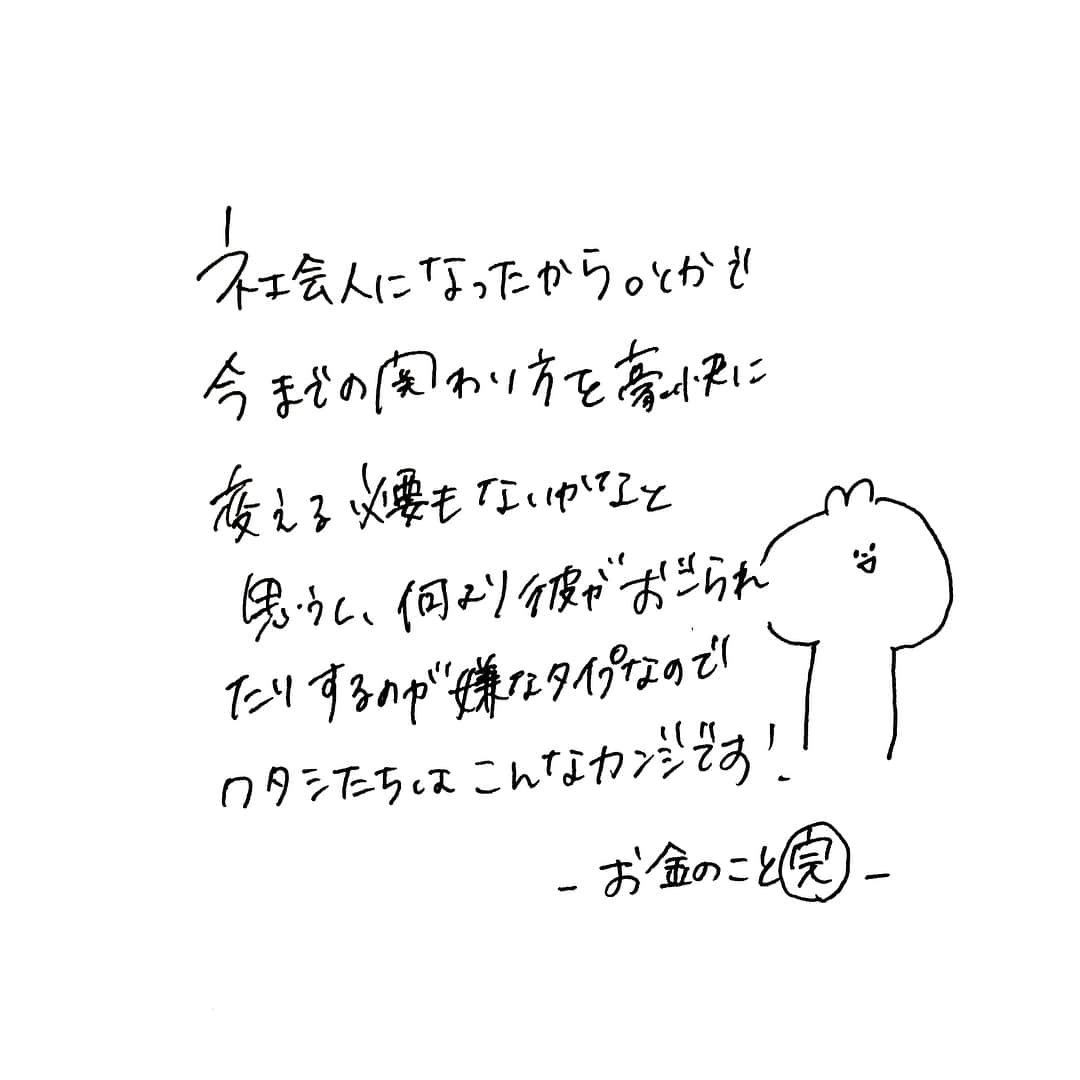 社会人になったから。とかで
今までの関わり方を豪快に
変える必要もないかなと
思うし、何より彼がおごられ
たりするのが嫌なタイプなので
ワタシたちはこんなカンジです!
- お金のこと完 -